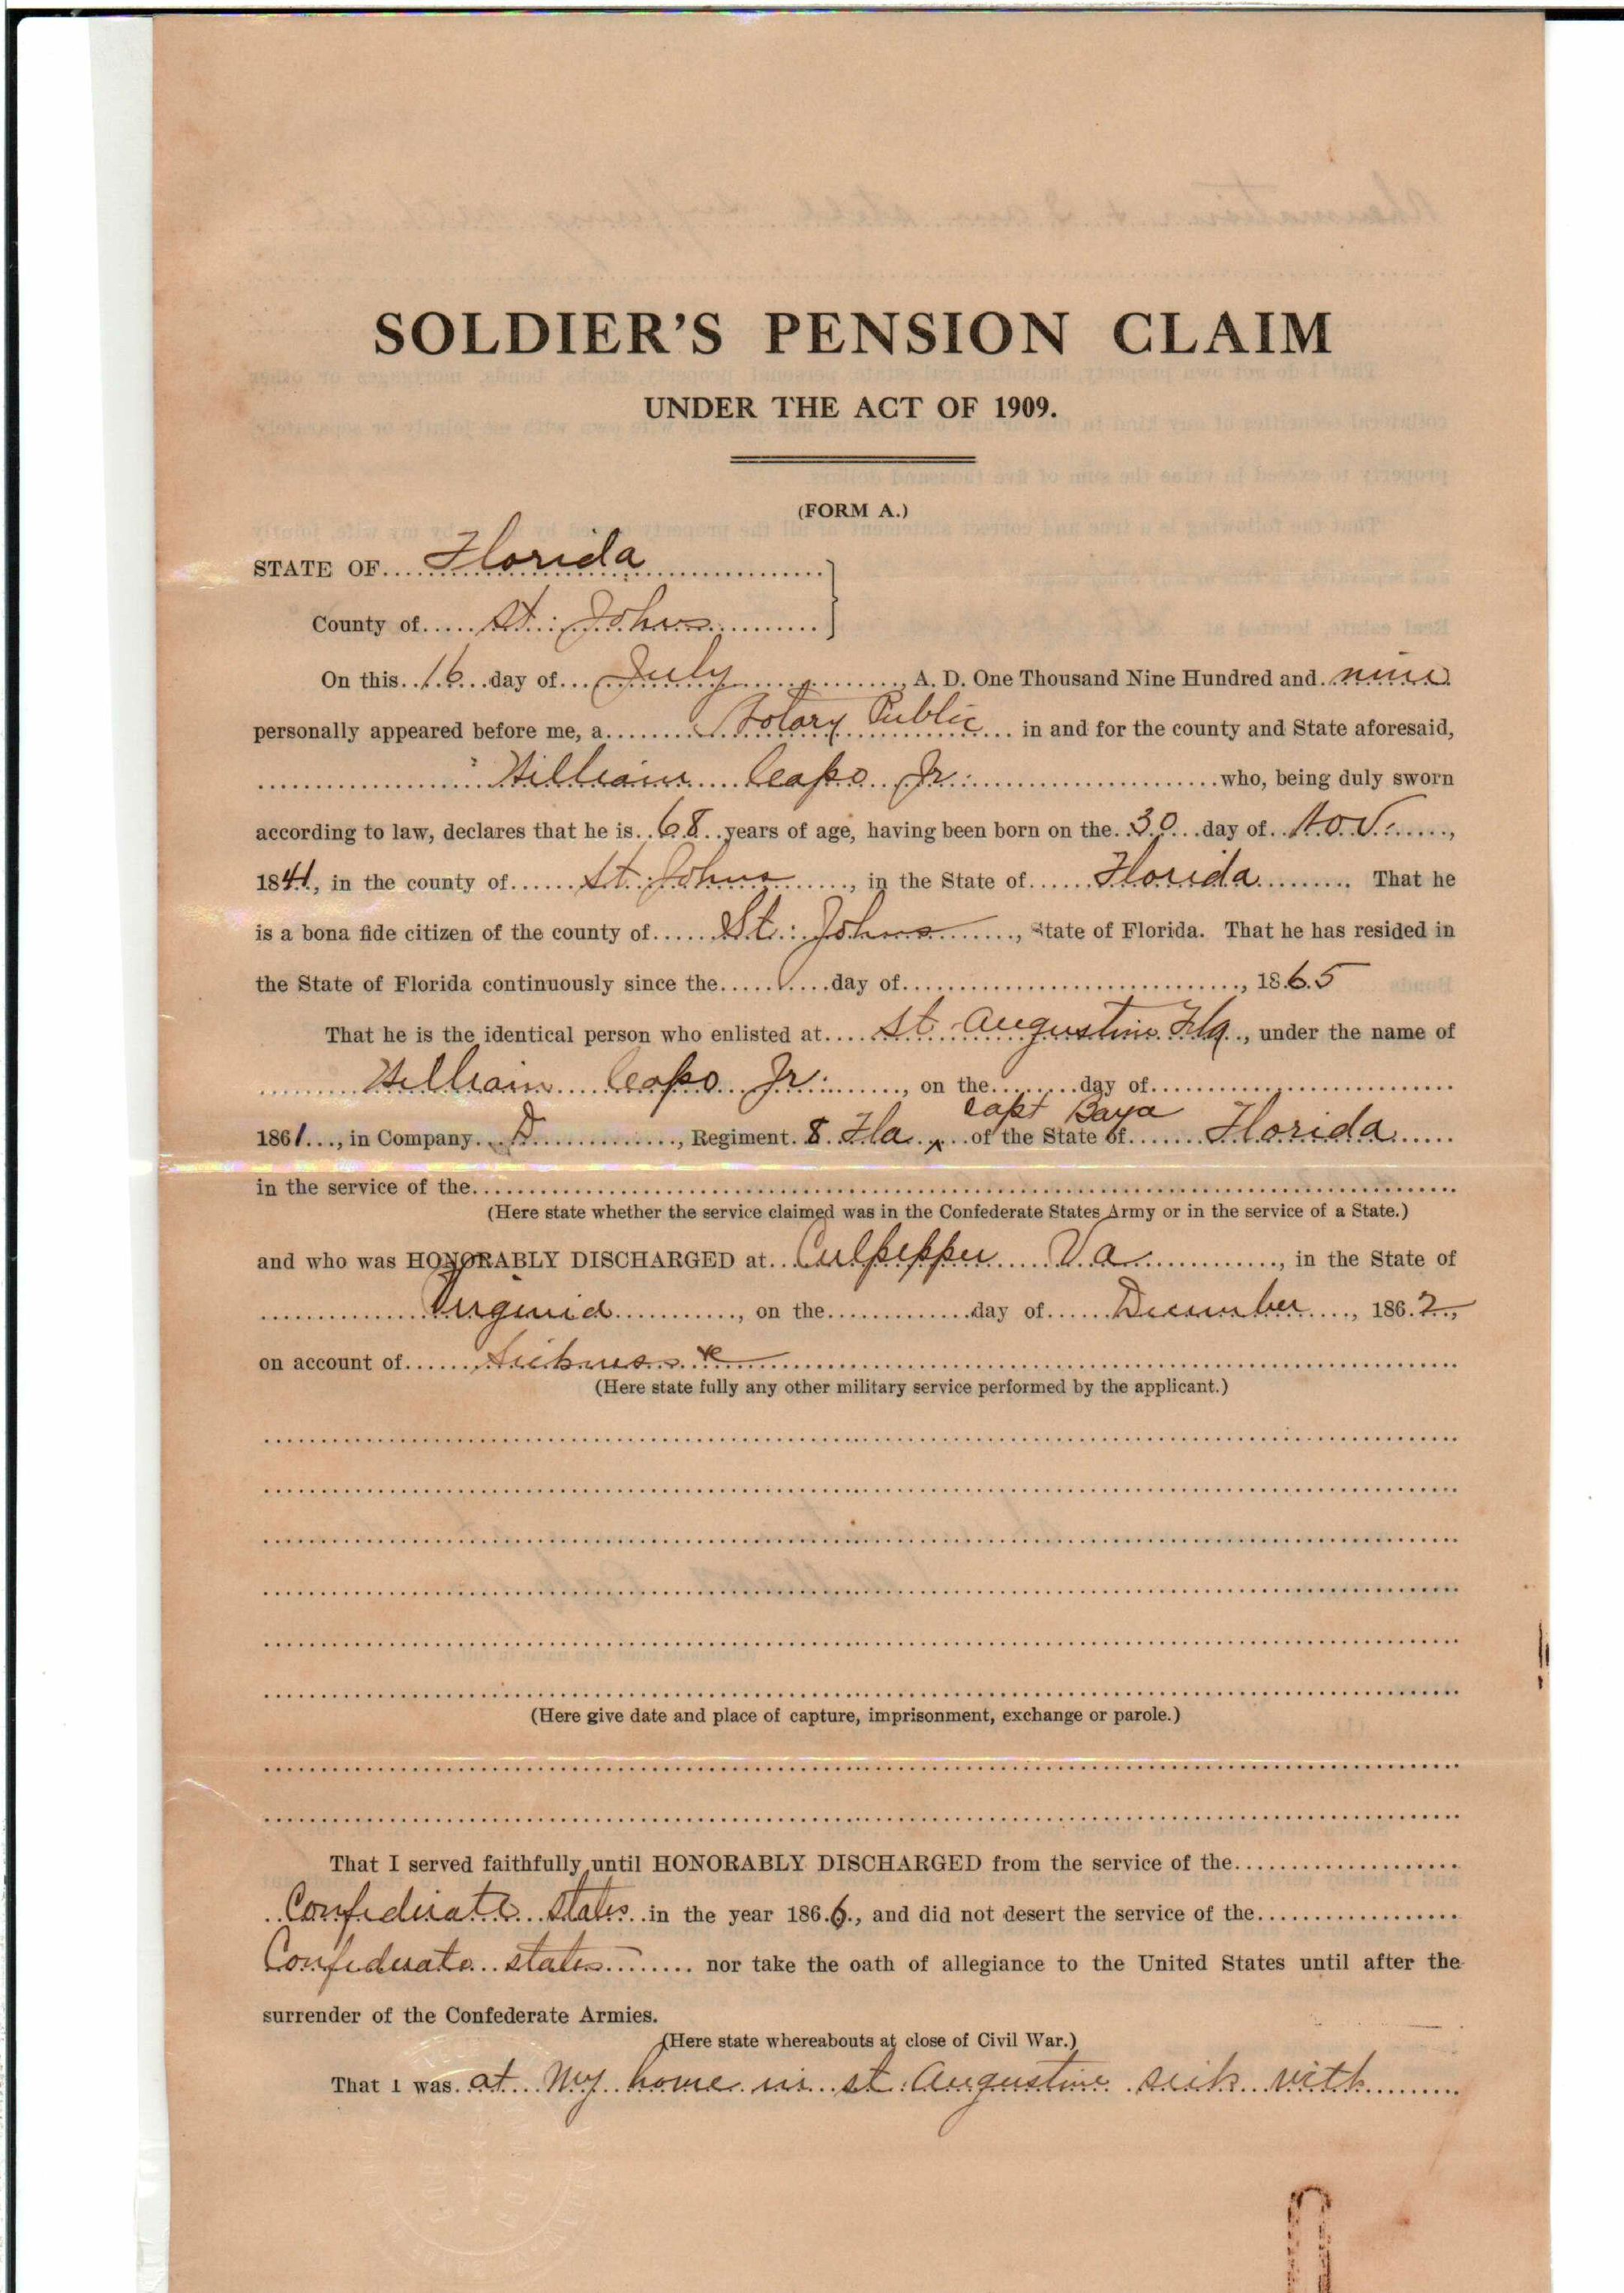 SOLDIER'S PENSION CLAIM
UNDER THE ACT OF 1909.
(FORM A.)
STATE OF Florida
County of St. Johns
On this 16 day of July, A. D. One Thousand Nine Hundred and nine
personally appeared before me, a Notary Public in and for the county and State aforesaid,
William Capo Jr. who, being duly sworn
according to law, declares that he is 68 years of age, having been born on the 30 day of Nov.,
1841, in the county of St. Johns, in the State of Florida. That he
is a bona fide citizen of the county of St. Johns, State of Florida. That he has resided in
the State of Florida continuously since the day of, 1865
That he is the identical person who enlisted at St. Augustine Fla., under the name of
William Capo Jr., on the day of
Capt Baya
1861, in Company D, Regiment 8 Fla ^ of the State of Florida
in the service of the
(Here state whether the service claimed was in the Confederate States Army or in the service of a State.)
and who was HONORABLY DISCHARGED at Culpepper Va, in the State of
Virginia, on the day of December, 1862,
on account of Sickness
(Here state fully any other military service performed by the applicant.)
(Here give date and place of capture, imprisonment, exchange or parole.)
That I served faithfully until HONORABLY DISCHARGED from the service of the
Confederate States in the year 186, and did not desert the service of the
Confederate states nor take the oath of allegiance to the United States until after the
surrender of the Confederate Armies.
(Here state whereabouts at close of Civil War.)
That I was at my home in St. Augustine sick with